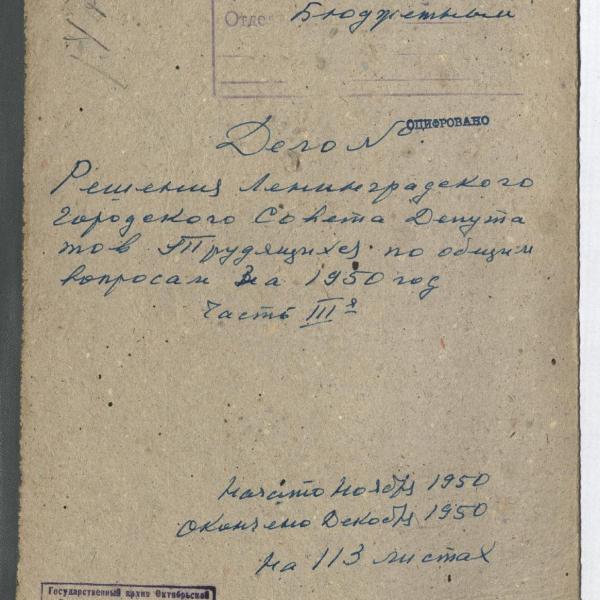 Бюджетный
Отде
Дело №
ОЦИФРОВАНО
Решения Ленинградского
Городского Совета Депута
тов Трудящихся по общим
вопросам за 1950 год
Часть III я
Начато Ноябрь 1950
Окончено Декабрь 1950
на 113 листах
Государственный архив Октябрьской